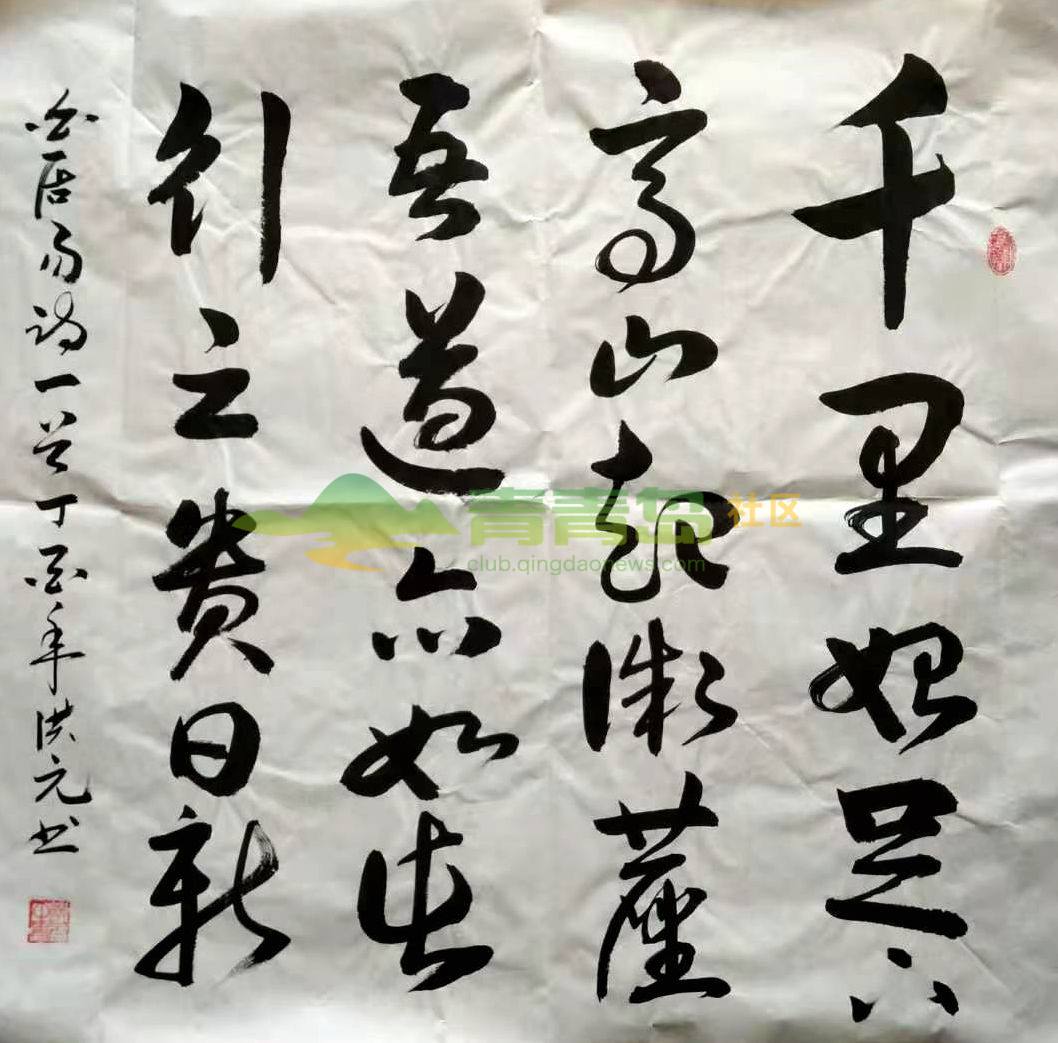 千里始足下
高山起微尘
吾道亦如此
行之贵日新
白居易诗一首丁酉年洪元书
青青岛社区
club.qingdaonews.com